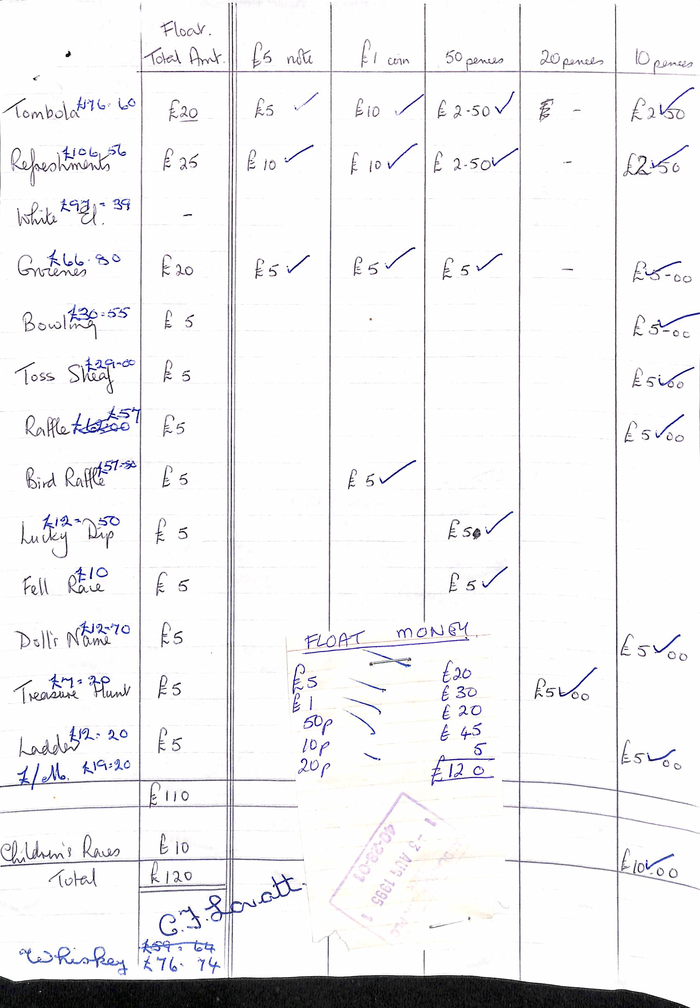 Float.
Total Amt. £5 note £1 coin 50 pences 20 pences 10 pences
£176.60
Tombola £20 £5 ✓ £10 ✓ £2.50 ✓ - £2.50 ✓
£106.56
Refreshments £25 £10 ✓ £10 ✓ £2.50 ✓ - £2.50 ✓
£97=39
White El. -
£66.80
Groceries £20 £5 ✓ £5 ✓ £5 ✓ - £5-00 ✓
£30=55
Bowling £5 £5-00 ✓
£29-00
Toss Sheaf £5 £5.00 ✓
£57
Raffle £62.00 £5 £5.00 ✓
£57-50
Bird Raffle £5 £5 ✓
£12=50
Lucky Dip £5 £5 ✓
£10
Fell Race £5 £5 ✓
£12-70
Doll's Name £5 £5.00 ✓
£7=20
Treasure Hunt £5 £5.00 ✓
£12=20
Ladder £5 £5.00 ✓
£/M. £19=20
£110
Children's Races £10 £10.00 ✓
Total £120
FLOAT MONEY
£5 £20
£1 £30
50p £20
10p £45
20p 5
£120
1 -3 AUG 1995 1
C.F. Lovatt.
£59=64
Whiskey £76=74